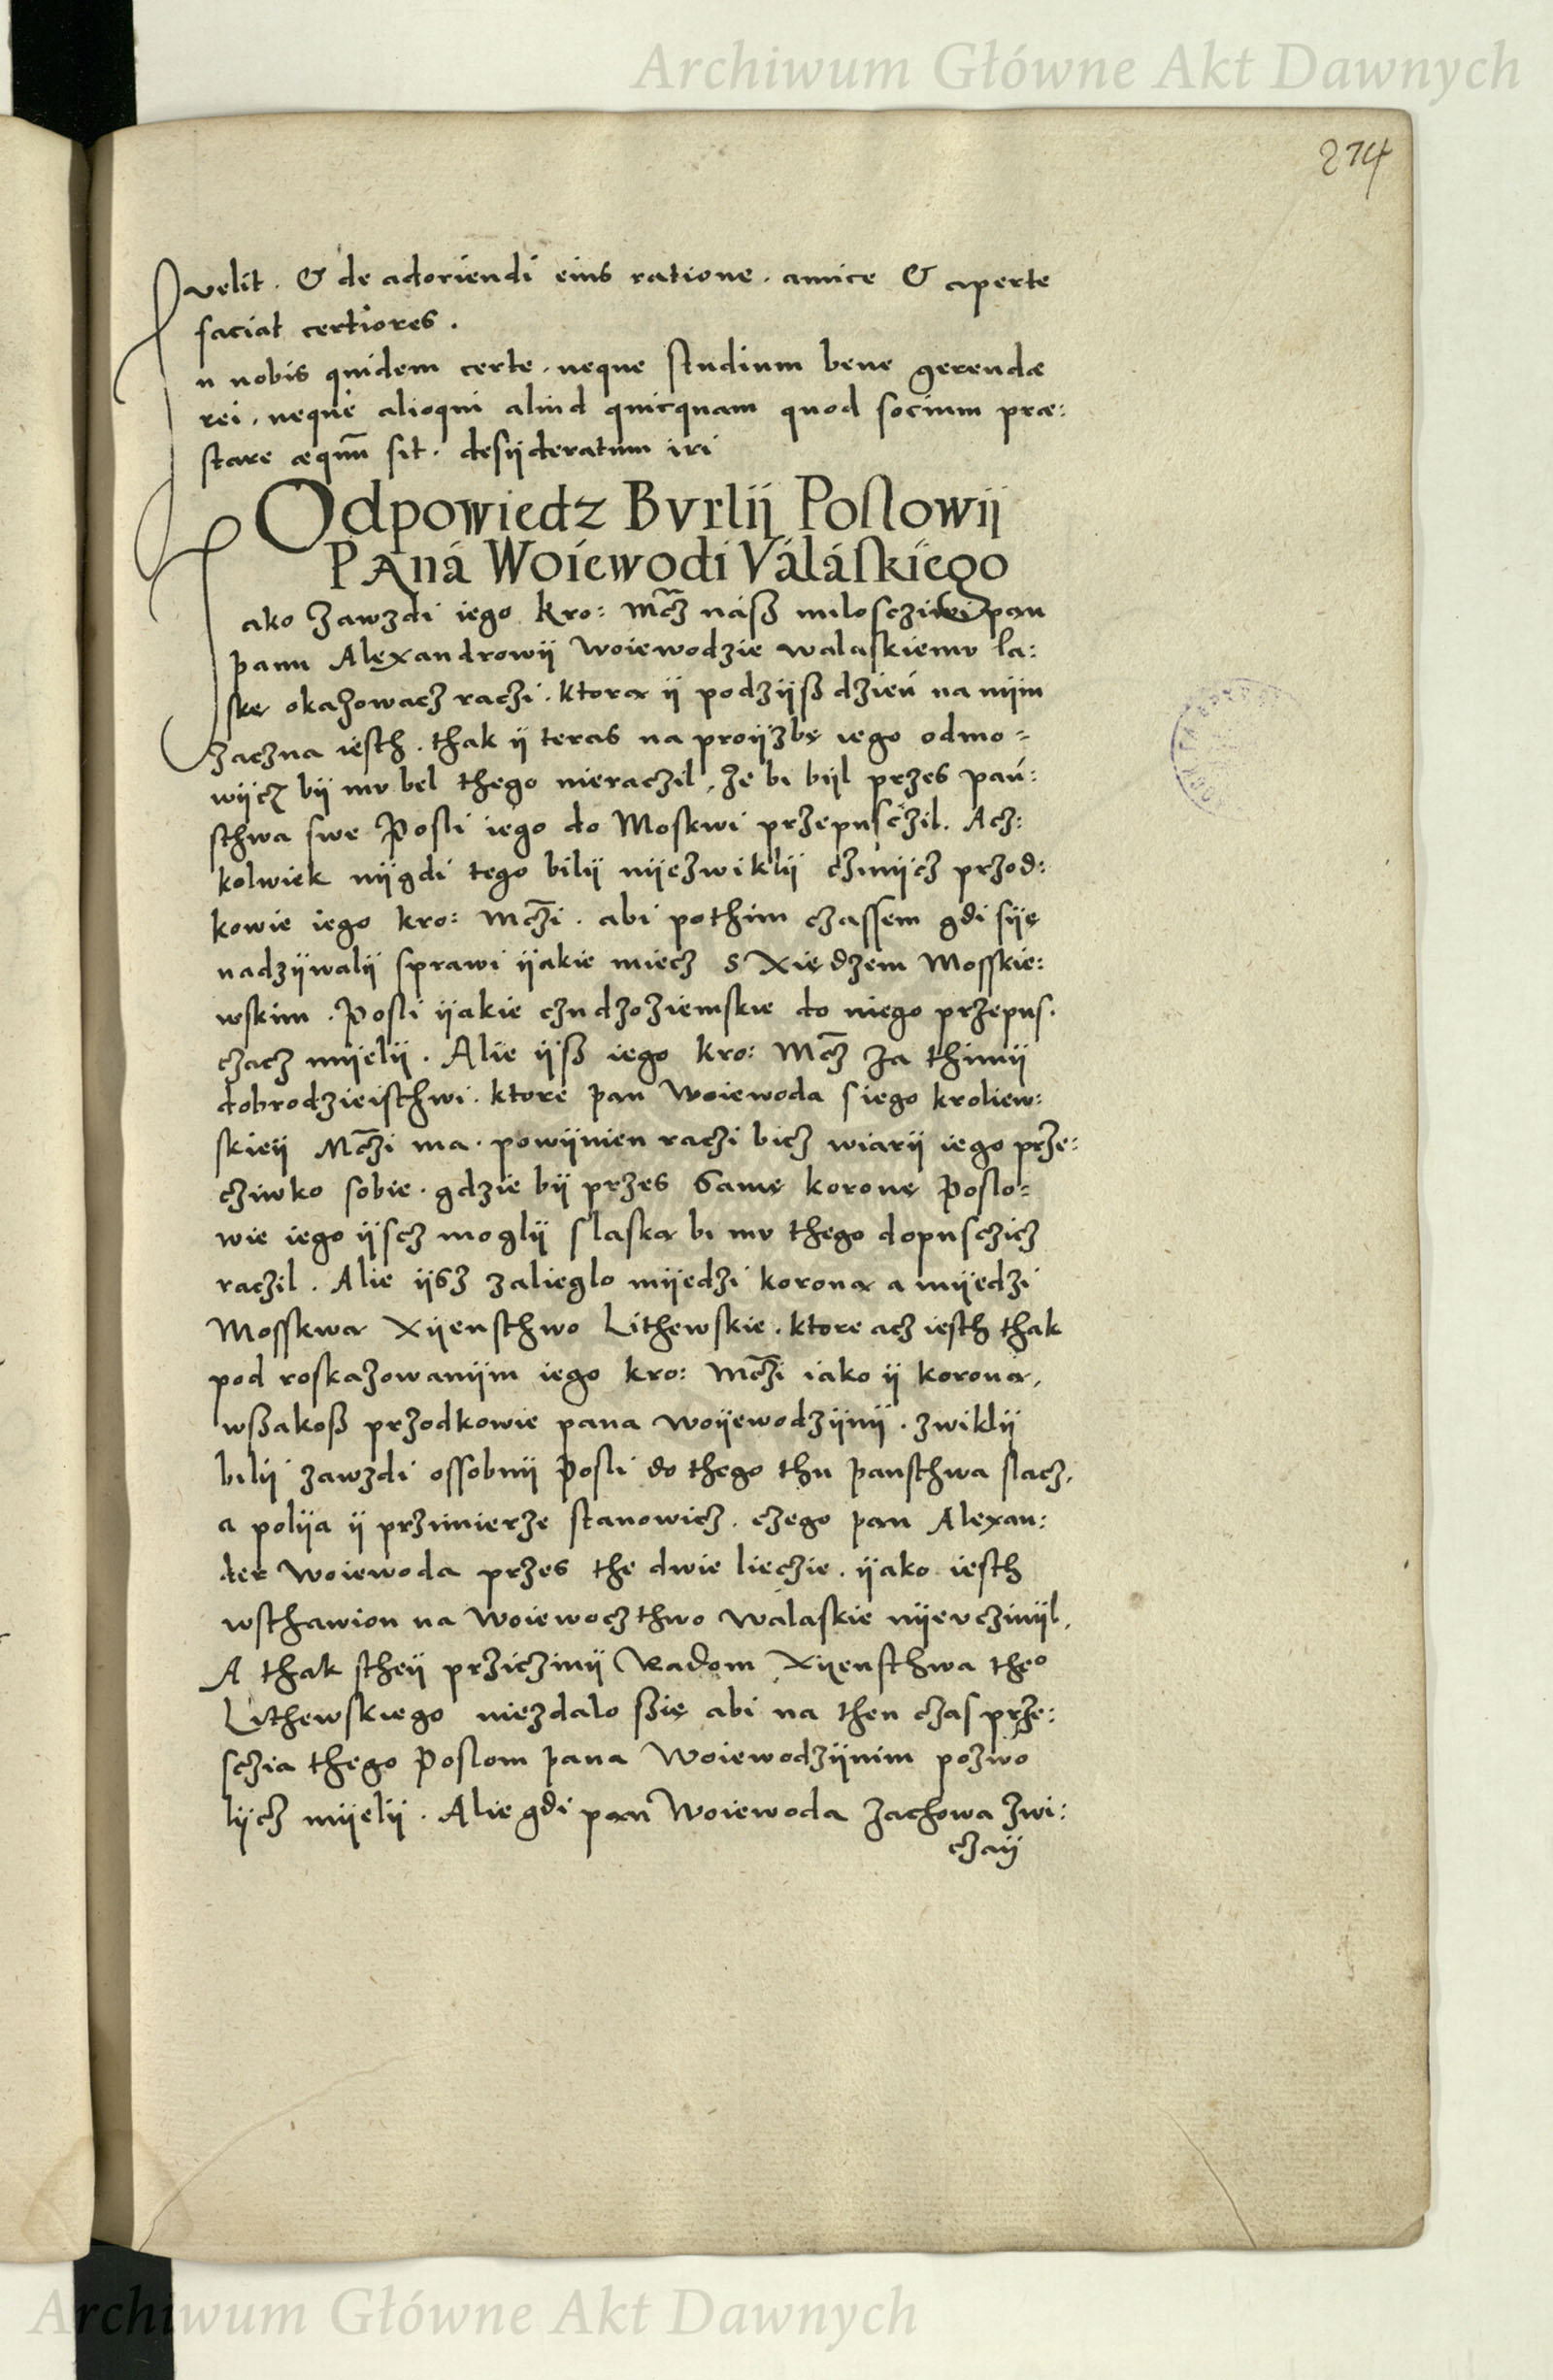 Archiwum Główne Akt Dawnych
274
velit. & de adoriendi eius ratione. amice & aperte
faciat certiores.
In nobis quidem certe. neque studium bene gerendæ
rei. neque alioqui aliud quicquam quod socium præ:
stare æquũ sit. desyderatum iri
Odpowiedz Bvrlij Poslowij
Paná Woiewodi Váláskiego
Iako zawzdi iego kro: Mcz nász milosczivi pan
panu Alexandrowij Woiewodzie walaskiemv la:
skę okazowacz raczi. ktora ij podzijß dzień na nijm
znaczna iesth. thak ij teras na proijzbę iego odmo=
wijcz bij mv bel thego nieraczil, że bi bijl przes pań:
sthwa swe Posli iego do Moskwi przepusczil. Acz:
kolwiek nijgdi tego bilij nijezwiklij czinijcz przod:
kowie iego kro: Mczi. abi pothim czassem gdi siję
nadzijwalij sprawi ijakie miecz s Xiędzem Mosskie:
wskim. Posli ijakie czudzoziemskie do niego przepus.
czacz mijelij. Alie ijß iego kro: Mcz za thimij
dobrodzieisthwi. ktore pan Woiewoda s iego kroliew:
skieij Mczi ma. powijnien raczi bicz wiarij iego prze:
cziwko sobie. gdzie bij przes samę koronę Poslo=
wie iego ijscz moglij s laska bi mv thego dopusczicz
raczil. Alie ijsz zalieglo mijedzi korona a mijedzi
Mosskwa Xijensthwo Lithewskie. ktore acz iesth thak
pod roskazowanijm iego kro: Mczi iako ij korona,
wßakoß przodkowie pana woijewodzijnij. zwiklij
bilij zawzdi ossobnij Posli do thego thu pansthwa slacz,
a polija ij przimierze stanowicz. czego pan Alexan:
der Woiewoda przes the dwie lieczie. ijako iesth
wsthawion na Woiewoczthwo Walaskie nijevczinijl,
A thak stheij prziczinij Radom Xijensthwa theo
Lithewskiego niezdalo ßię abi na then czas prze:
sczia thego Poslom pana Woiewodzijnim pozwo
lijcz mijelij. Alie gdi pan Woiewoda zachowa zwi:
czaij
Archiwum Główne Akt Dawnych